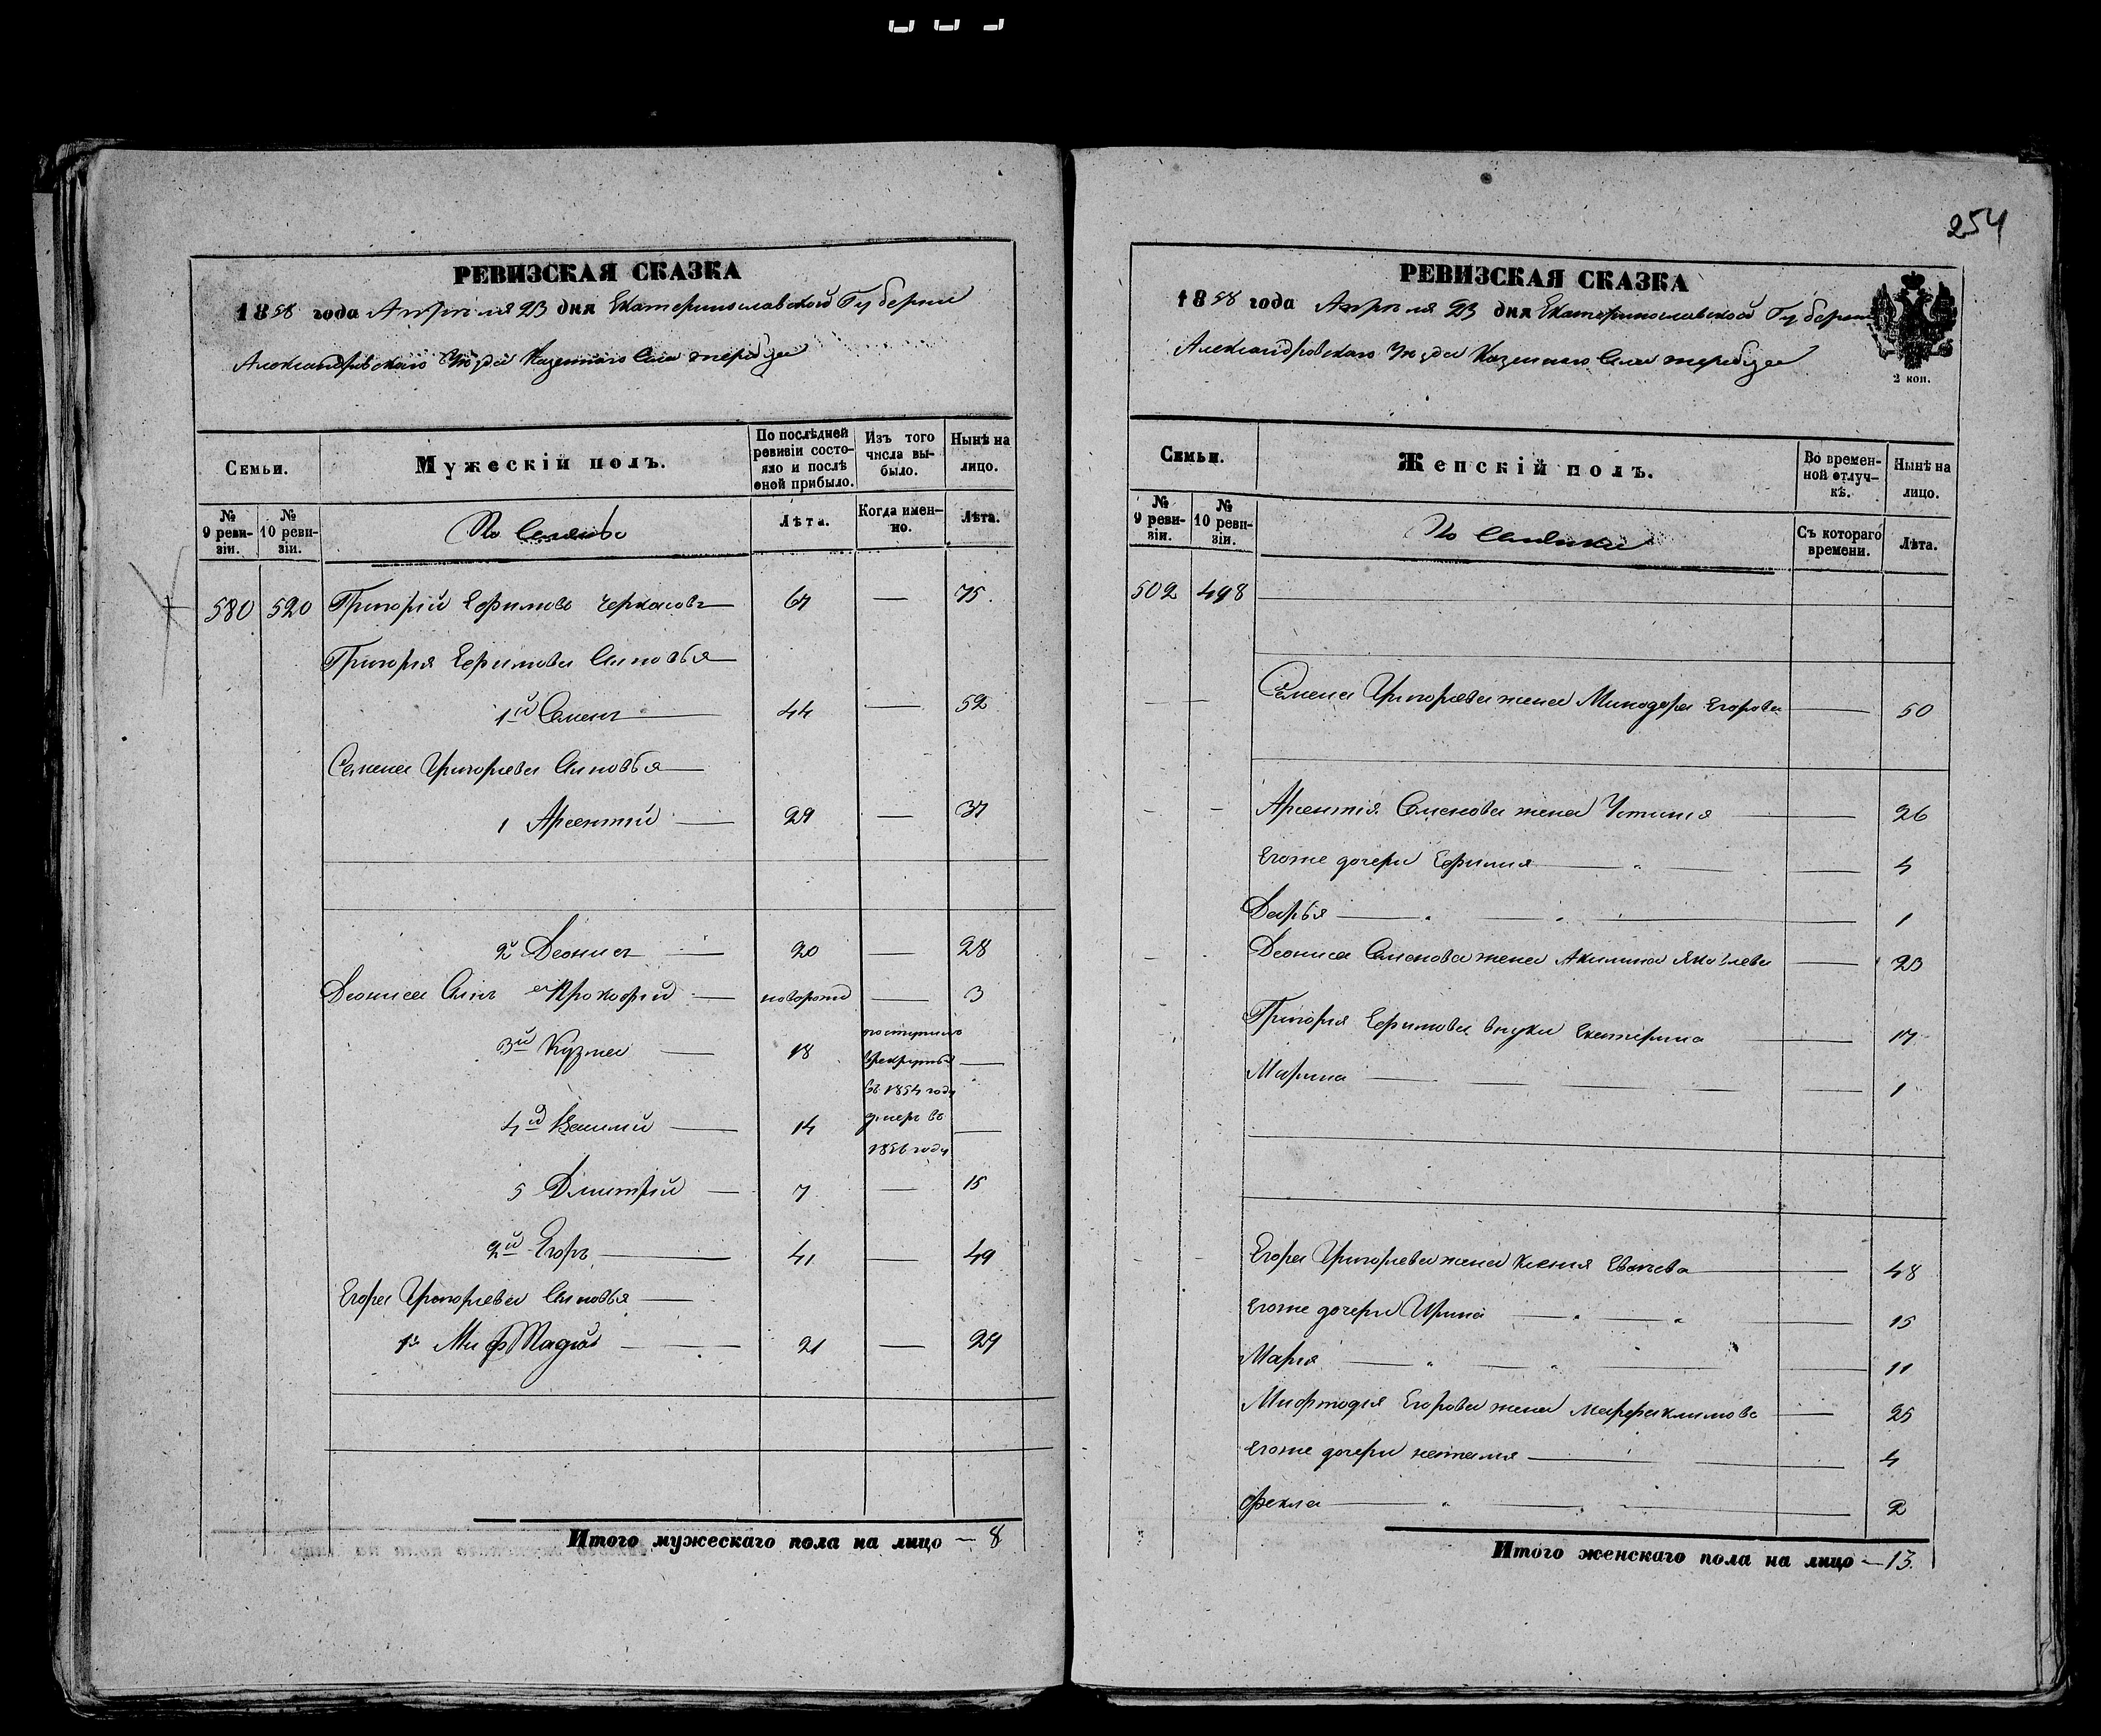 254
РЕВИЗСКАЯ СКАЗКА
1858 года Апреля 23 дня Екатеринославской Губернии
Александровскаго Уезда Казеннаго Села
Семьи.
Мужескій полъ.
По послѣдней ревизіи состояло и послѣ оной прибыло.
Изъ того числа выбыло.
Нынѣ на лицо.
№ 9 ревизіи.
№ 10 ревизіи.
Лѣта.
Когда именно.
Лѣта.
580 520 Григорий Ефимовъ Черкасовъ 67 — 75.
Григория Ефимова Сыновья
1й Семенъ 44 — 52
Семена Григорьева Сыновья
1 Арсентий 29 — 37
2й Деонисъ 20 — 28
Деониса Сынъ Прокофий — 3
3й Кузма — 18 поступилъ
въ 1854 году
4й 14 умеръ въ
1856 году
5 Дмитрий — 7 — 15
2й Егоръ 41 — 49
Егора Григорьева Сыновья
1й Мифтодий 21 — 29
Итого мужескаго пола на лицо — 8
РЕВИЗСКАЯ СКАЗКА
1858 года Апреля 23 дня Екатеринославской Губернии
Александровскаго Уезда Казеннаго Села
2 коп.
Семьи.
Женскій полъ.
Во временной отлучкѣ.
Нынѣ на лицо.
№ 9 ревизіи.
№ 10 ревизіи.
Съ котораго времени.
Лѣта.
502 498
Семена Григорьева жена Минодора Егорова — 50
Арсентия Семенова жена Устиния — 26
Егоже дочери Ефимия — 4
Дарья — 1
Деониса Семенова жена Акилина Яковлева — 23
Григория Ефимова внуки Екатерина — 17
Марина — 1
Егора Григорьева жена Ксения — 48
Егоже дочери Ирина — 15
Мария — 11
Мифтодия Егорова жена Марфа Климова — 25
Егоже дочери Наталия — 4
Фекла — 2
Итого женскаго пола на лицо — 13.